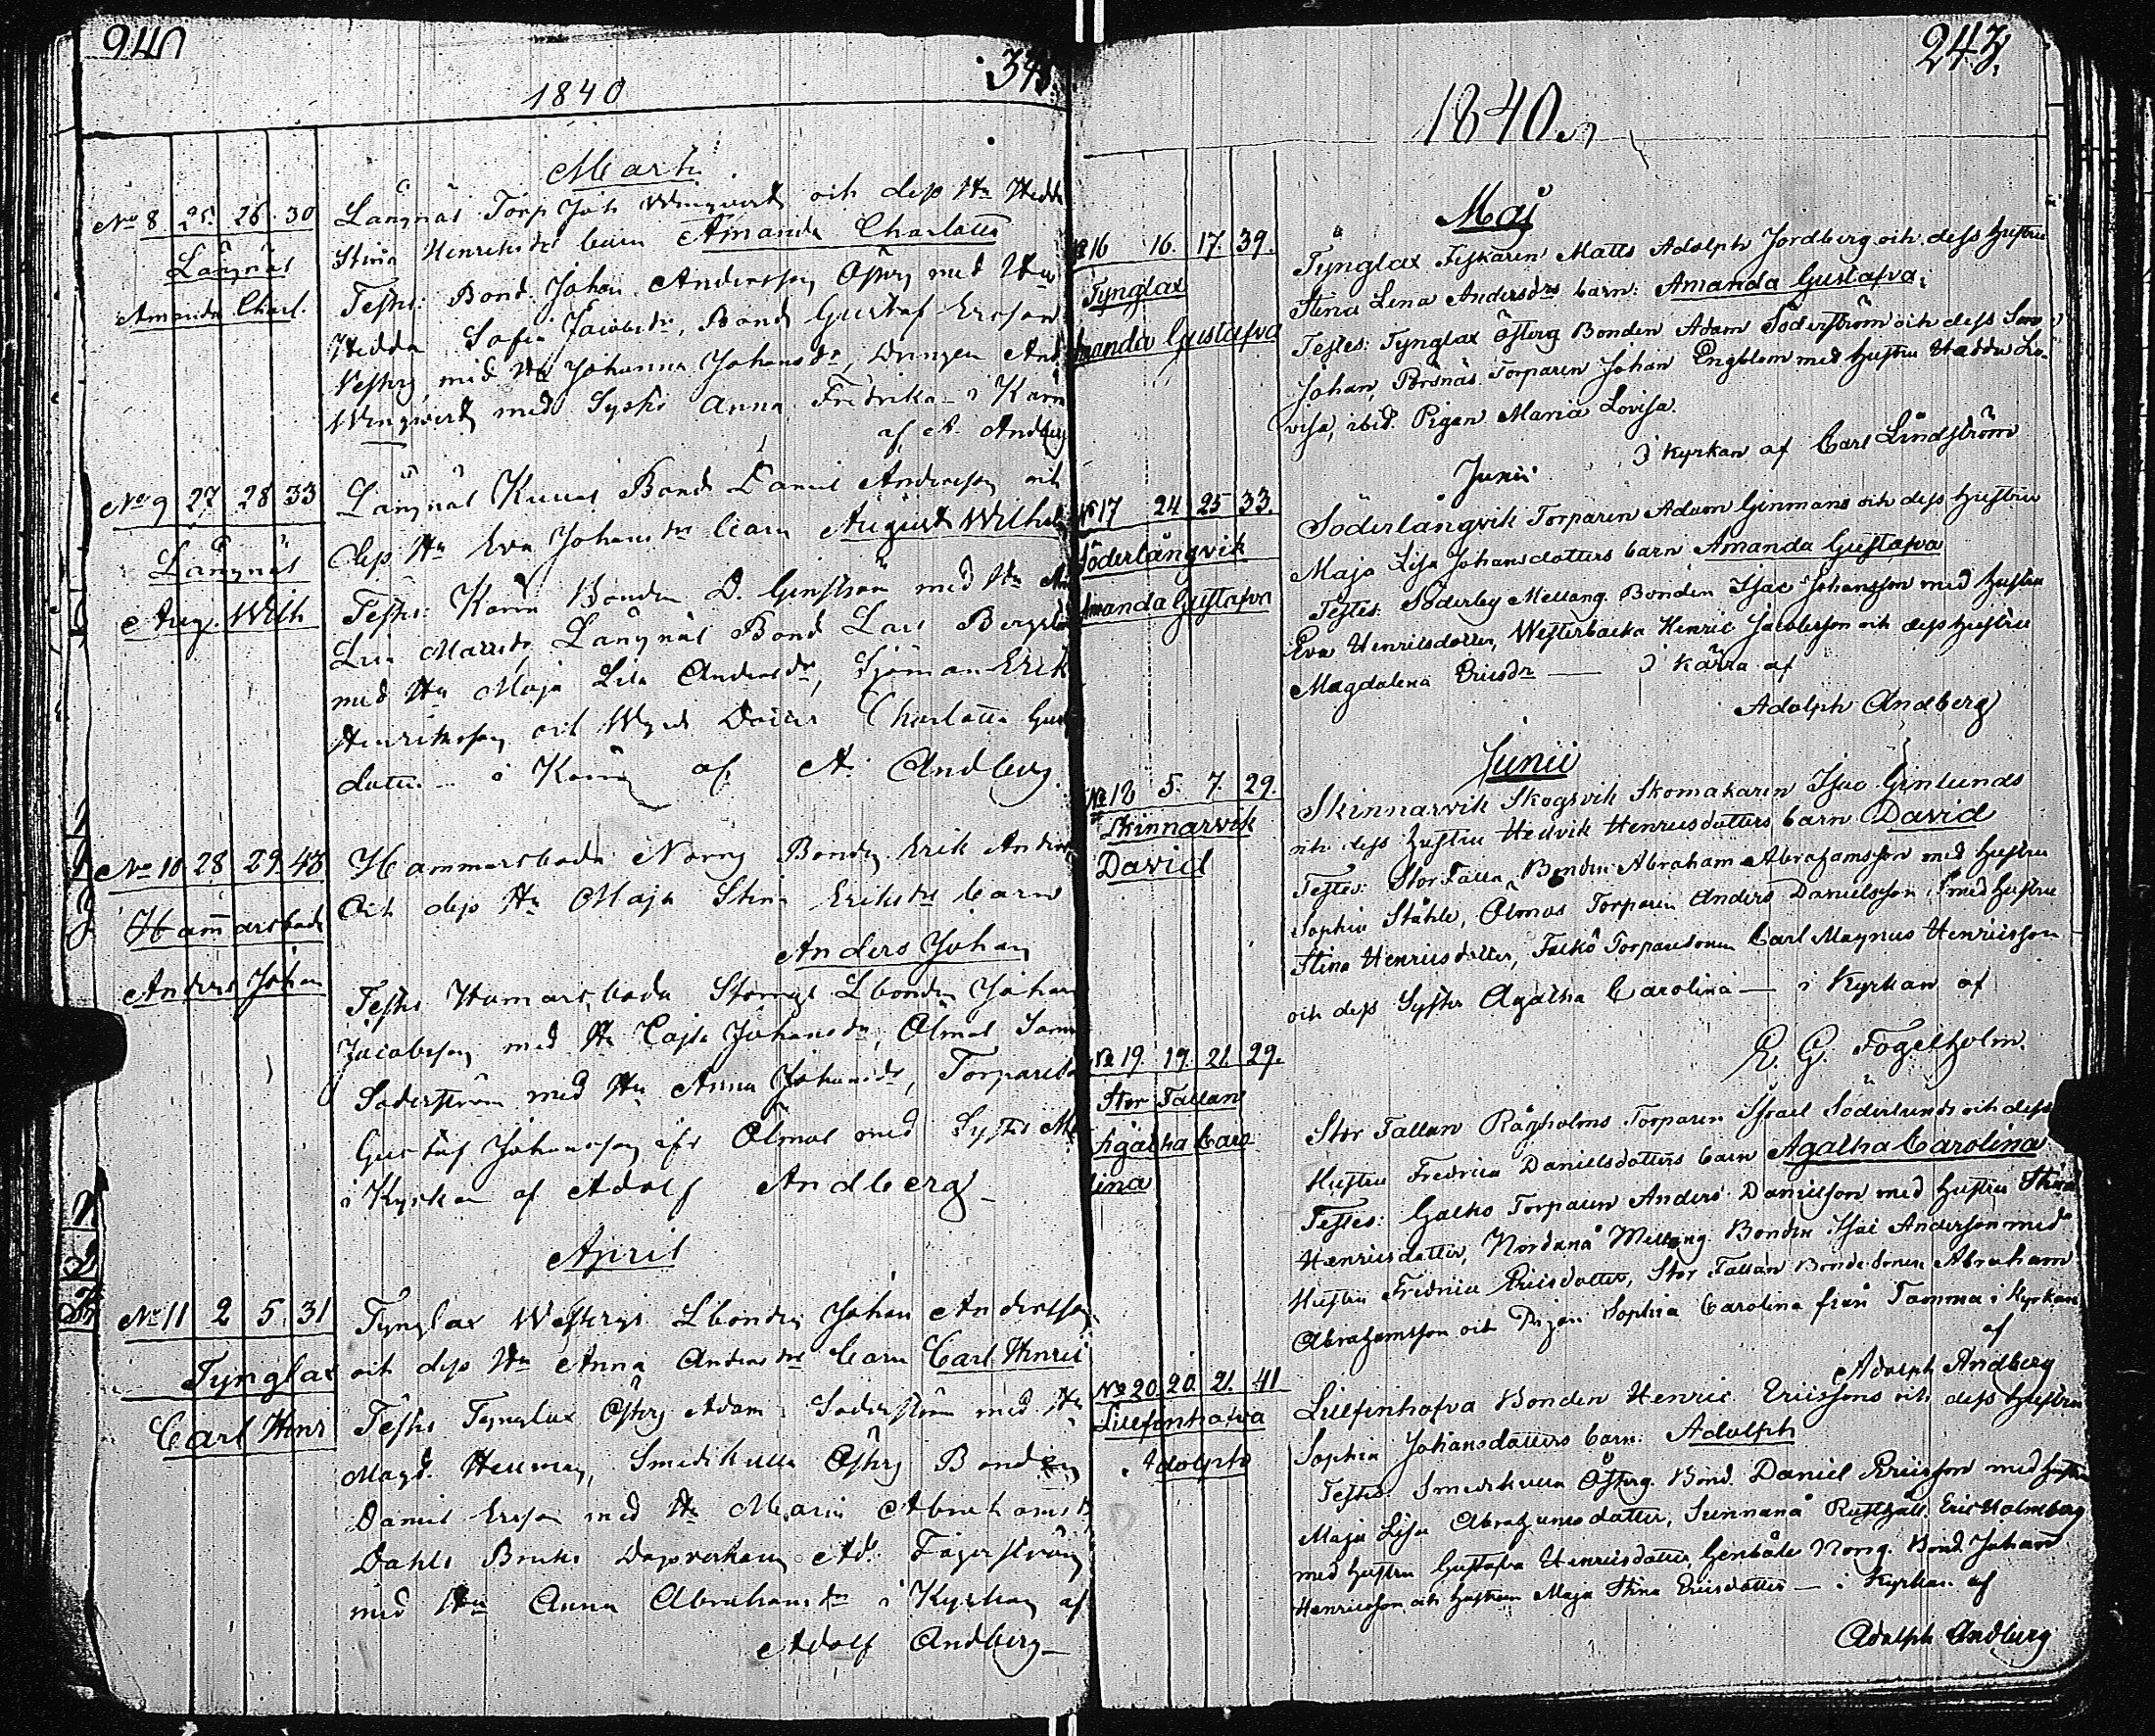 1840
Marti
No 8 25. 26. 30
Långnäs
Amanda Charl.
Långnäs Torp Joh Wengvert och dess Hu Hedda
Stina Henriksdr barn Amanda Charlotta
Testes: Bond. Johan Andersson Österg med Hu
Hedda Sofia Jacobsdr, Bond Gustaf Ersson
Westerg med Hu Johanna Johansdr, Drengen And
Wengvert med Syster Anna Fredrika i Karra
af A. Andberg
No 9 27 28 33
Långnäs
Aug. Wilh
Långnäs Bond Daniel Andersson och
dess Hu Eva Johansdr barn August Wilhelm
Testes: Bonden D. med Hu
Långnäs Bond Lars
med Hu Maja Lisa Andersdr, Sjöman Erik
Henriksson och Charlotta
dotter i af A. Andberg
No 10 28 29 43
Hammarsboda
Anders Johan
Hammarsboda Norrg Bonden Erik Anders
Och dess Hu Maja Stina Eriksdr barn
Anders Johan
Testes Hamarsboda Storrgs Lbonden Johan
Jacobsson med Hu Cajsa Johansdr, Ölmos
Söderström med Hu Anna Johansdr,
Gustaf Johansson ifr Ölmos med Syster
i Kyrkan af Adolf Andberg
April
No 11 2 5. 31
Tynglax
Carl Henr
Tynglax Westergs Lbonden Johan Andersson
och dess Hu Anna Andersdr barn Carl Henric
Testes Tynglax Österg Adam Söderström med Hu
Magd. Smedskulla Österg Bonden
Daniel Ersson med Hu Maria Abrahamsdr
Dahls Bruks Ad. Fagerström
med Hu Anna Abrahamsdr i Kyrkan af
Adolf Andberg
243.
1840
Maj
16 16. 17. 39.
Tynglax
Amanda Gustafva
Tynglax Fiskaren Matts Adolph Jordberg och dess hustru
Stina Lena Andersdrs barn: Amanda Gustafva.
Testes: Tynglax Österg Bonden Adam Söderström och dess Son
Johan, Pörsnäs Torparen Johan Engblom med hustru Hedda Lo-
visa, ibid. Pigan Maria Lovisa.
I kyrkan af Carl Lindström
Junii
No 17 24 25 33.
Söderlångvik
Amanda Gustafva
Söderlångvik Torparen Adam Ginmans och dess hustru
Maja Lisa Johansdotters barn Amanda Gustafva
Testes: Söderby Mellang. Bonden Isac Johansson med hustru
Eva Henricsdotter, Westerbacka Henric Jacobsson och dess hustru
Magdalena Ericsdr — I Karra af
Adolph Andberg
Junii
No 18 5. 7. 29.
Skinnarvik
David
Skinnarvik Skogsvik Skomakaren Isac Genlunds
och dess hustru Hedvik Henricsdotters barn David
Testes: StorFallan Bonden Abraham Abrahamsson med hustru
Sophia Ståhle, Ölmos Torparen Anders Danielsson med hustru
Stina Henricsdotter, Torparesonen Carl Magnus Henricsson
och dess Syster Agatha Carolina — i Kyrkan af
E. G. Fogelholm.
No 19. 19. 21. 29.
Stor Fallan
Agatha Caro
lina
Stor Fallan Rågholms Torparen Israel Söderlunds och dess
Hustru Fredrica Danielsdotters barn Agatha Carolina
Testes: Torparen Anders Danielsson med hustru Stina
Henricsdotter, Nordanå Mellang Bonden Isac Andersson med
Hustru Fredrica Ericsdotter, Stor Fallan Bonde Sonen Abraham
Abrahamsson och Pigan Sophia Carolina från Tamma i Kyrkan
af
Adolph Andberg
No 20. 20. 21. 41
Lillfinhofva
Adolph
Lillfinhofva Bonden Henric Ericssons och dess hustru
Sophia Johansdotters barn: Adolph
Testes: Smedskulla Österg. Bond. Daniel Ericsson med hustru
Maja Lisa Abrahamsdotter, Sunnanå Rusthåll. Eric Holmberg
med hustru Gustafva Henricsdotter, Genböle Norrg. Bond. Johan
Henricsson och hustrun Maja Stina Ericsdotter — i Kyrkan af
Adolph Andberg